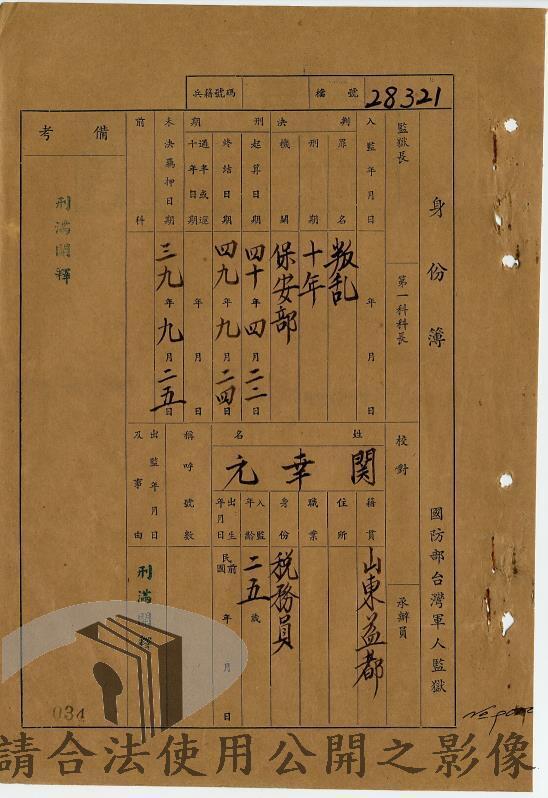 身份簿
國防部台灣軍人監獄
兵籍號碼
檔號 28321
監獄長
第一科科長
校對
承辦員
入監年月日 年 月 日
判決
罪名 叛乱
刑期 十年
機關 保安部
刑期
起算日期 四十年四月二二日
終結日期 四九年九月二四日
過半或逾十年日期 年 月 日
未決羈押日期 三九年九月二五日
前科
備考
刑滿開釋
姓名
關幸元
籍貫 山東益都
住所
職業
身份 税務員
入監年齡 二五歲
出生年月日 民前國 年 月 日
稱呼號數
出監年月日及事由
刑滿開釋
034
請合法使用公開之影像